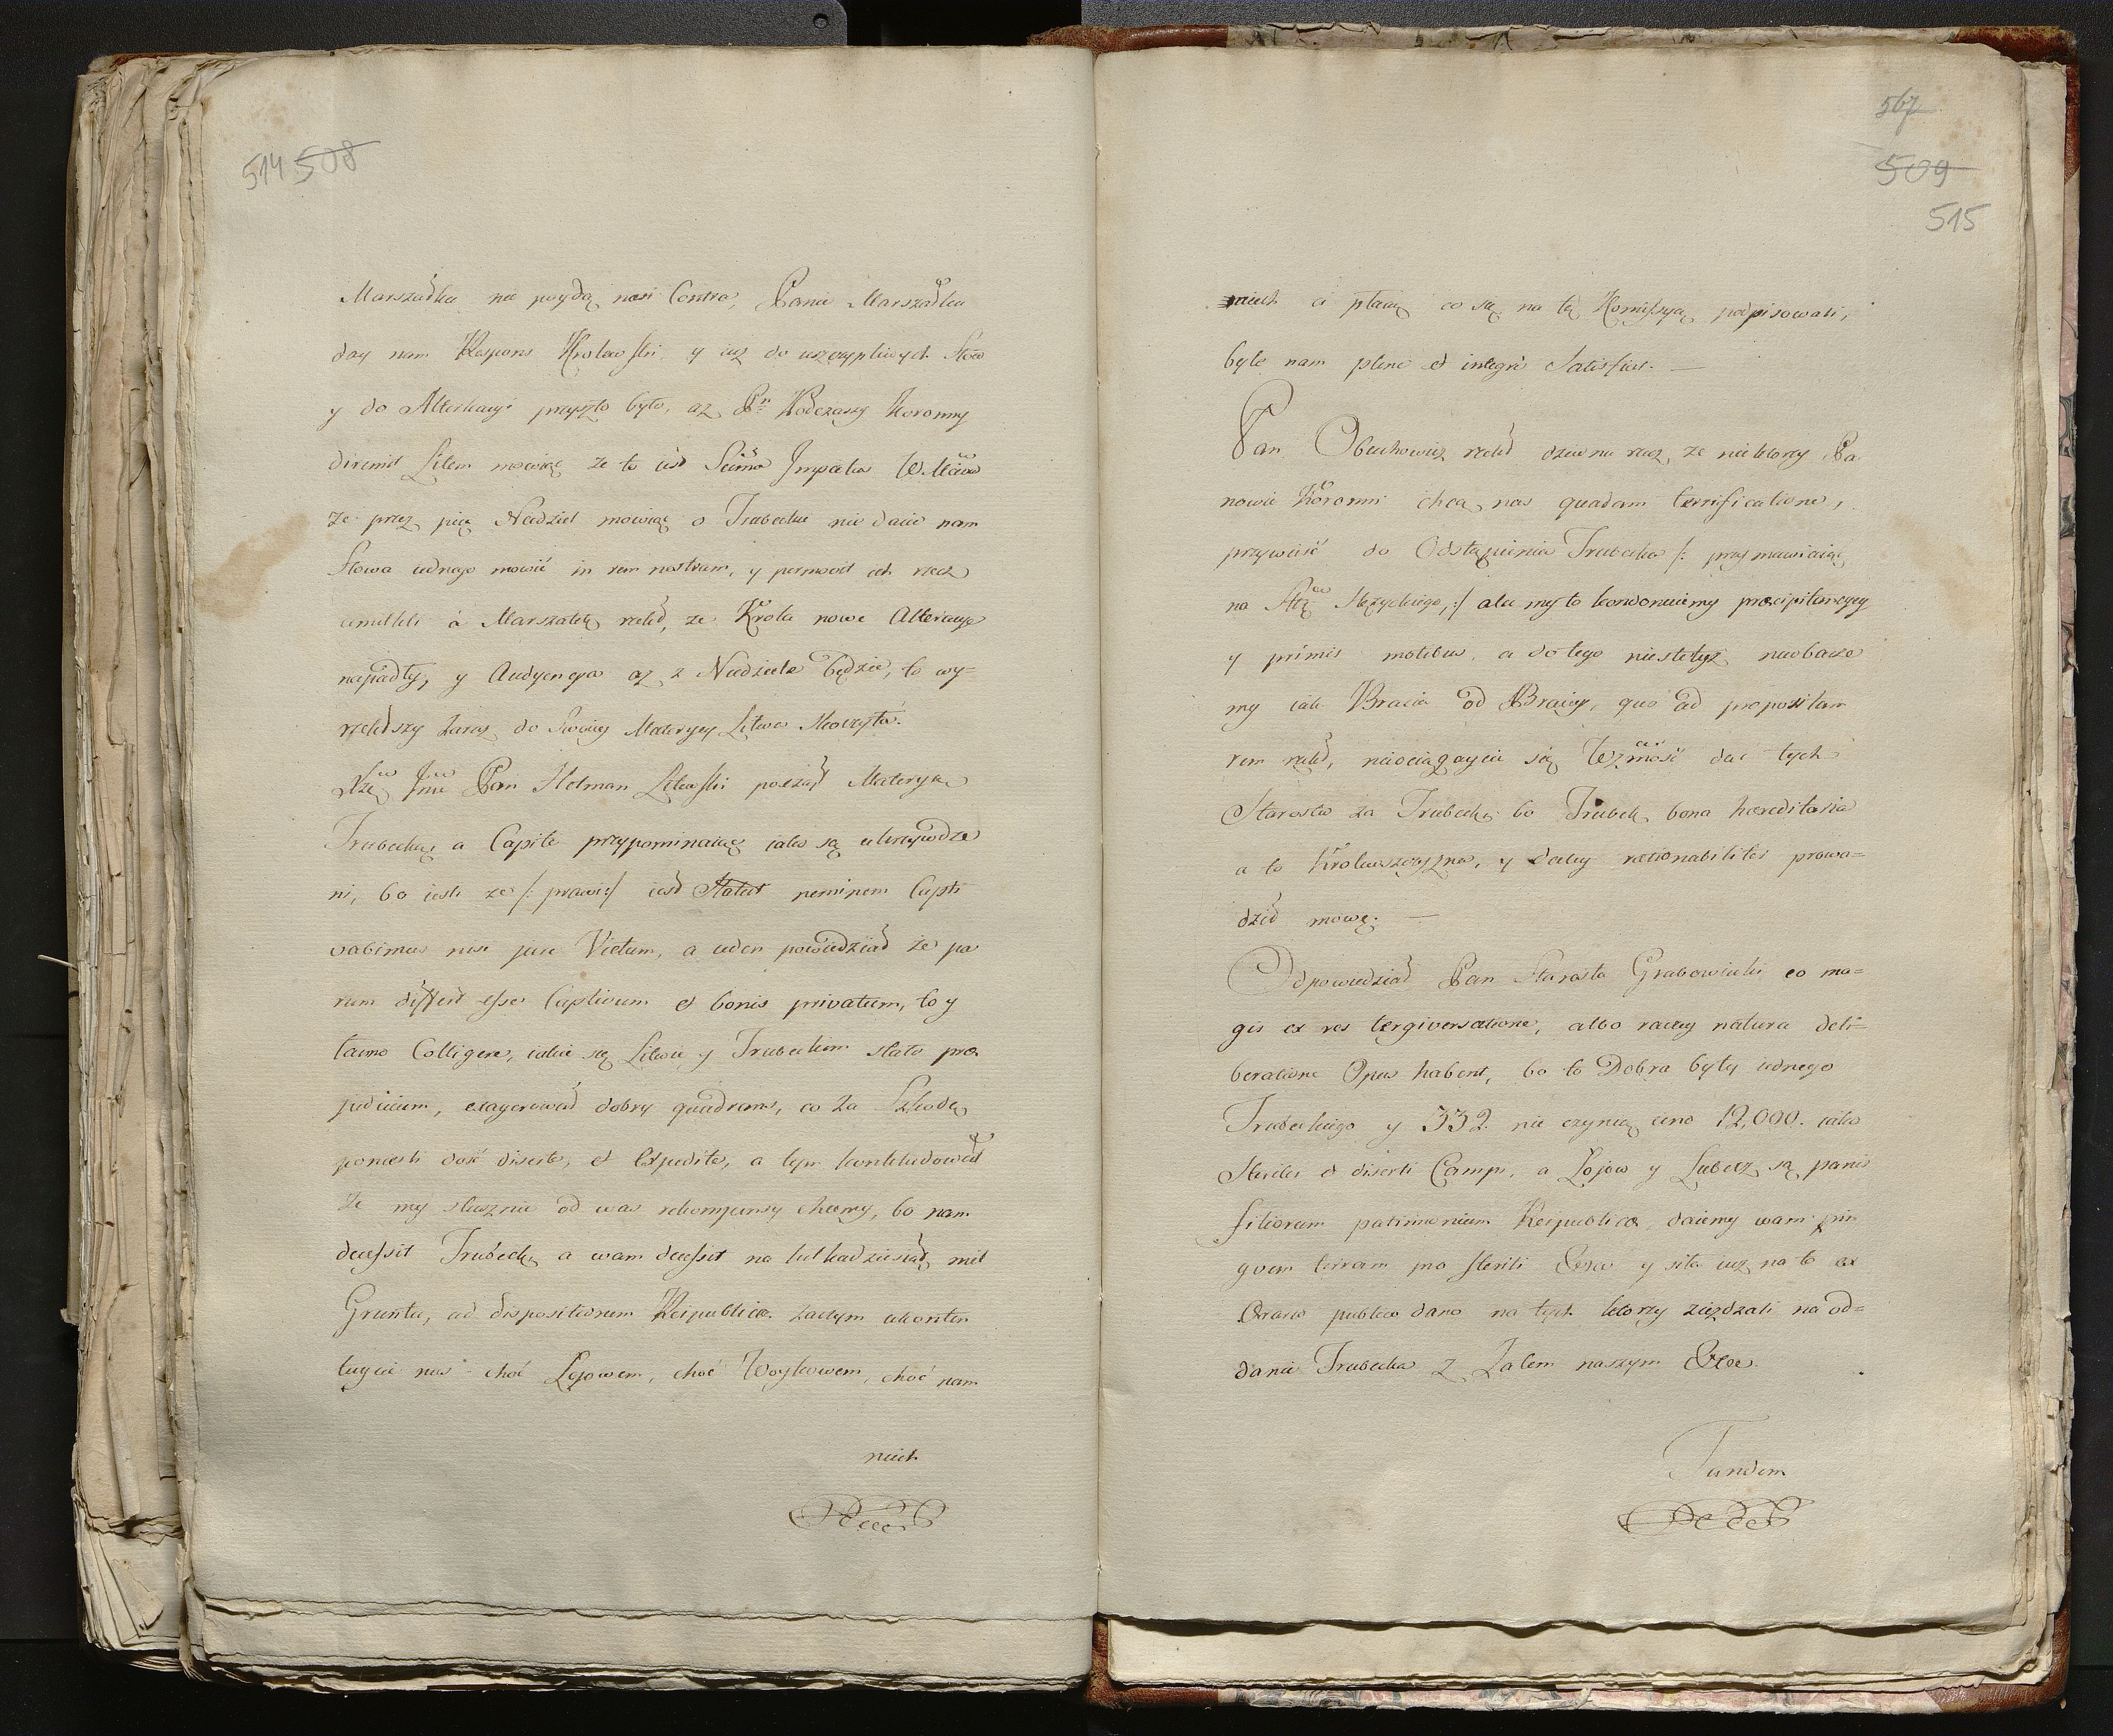 514 508
Marszałku nie poydą nasi Contra, Panie Marszałku
day nam Respons Krolewski, y iuz do uszczypliwych Słow
y do Alterkacyi przyszło było, az Pn Podczaszy Koronny
diremit Litem mowiąc ze to iest Summa Impetus W.
ze przez pięc Niedziel mowiąc o Trubecku nie dacie nam
Słowa iednego mowić in rem nostram, y permovit ich rzecz
á Marszałek rzekł, ze Krola nowe Alteracye
napadły, y Audyencya az z Niedziele będzie, to wy=
rzekłszy zaraz do swoiey Materyey Litwa skoczyła.
Pan Hetman Litewski począł Materyą
Trubecką a Capite przypominaiąc iako są ukrzywdze
ni, bo iesli ze /: prawi :/ iest Statut neminem Capti
vabimus nisi jure Victum, a ieden powiedział że pa
rum differt esse Captivum et bonis privatum, to y
łacno Colligere, iakie się Litwie y Trubeckim stało præ
judicium, exagerował dobry quadrans, co za Szkodę
poniesli dość diserte, et Expedite, a tym konkludował
Ze my słusznie od was rekompensy chcemy, bo nam
decessit Trubeck, a wam accessit na kilkadziesiąt mil
Gruntu, ad dispositionem Reipublicæ. zaczym ukonten
tuycie nas choć Łojowem, choć Woyskowem, choć nam
niech
567
509
515
niech ci płacą co się na tę Komissyą podpisowali,
byle nam plene et integre Satisfiat. —
Pan Obuchowicz rzekł dziwna rzecz, ze niektorzy Pa
nowie Koronni chcą nas quadam terrificatione,
przywieść do Odstąpienia Trubecka /: przymawiaiąc
na :/ ale my to kondonuiemy præcipitancyey
y primis motibus, a do tego niestetyż
my iak Bracia od Braciey, quo ad propositam
rem rzekł, nieociągaycie się dać tych
Starostw za Trubeck, bo Trubeck bona hæreditaria
a to Krolewszczyzna, y daley rationabiliter prowa=
dził mowę. —
Odpowiedział Pan Starosta Grabowiecki eo ma=
gis ex res tergiversatione, albo raczey natura deli=
beratione Opus habent, bo to Dobra były iednego
Trubeckiego y 332. nie czynią ieno 12,000. iako
Steriles et diserti Campi, a Łojow y Lubecz są panis
filiorum patrimonium Reipublicæ, daiemy wam pin
guem terram pro sterili y siła iuz na to ex
Ærario publico dano na tych ktorzy ziezdzali na od=
danie Trubecka z Zalem naszym
Tandem